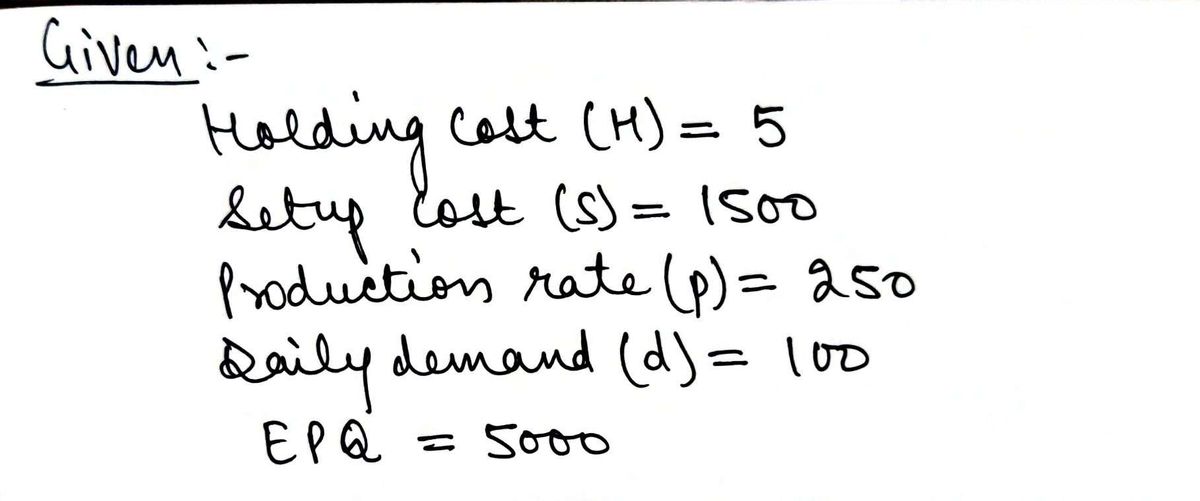 Given :-
Holding cost (H) = 5
Setup cost (S) = 1500
Production rate (p) = 250
Daily demand (d) = 100
EPQ = 5000